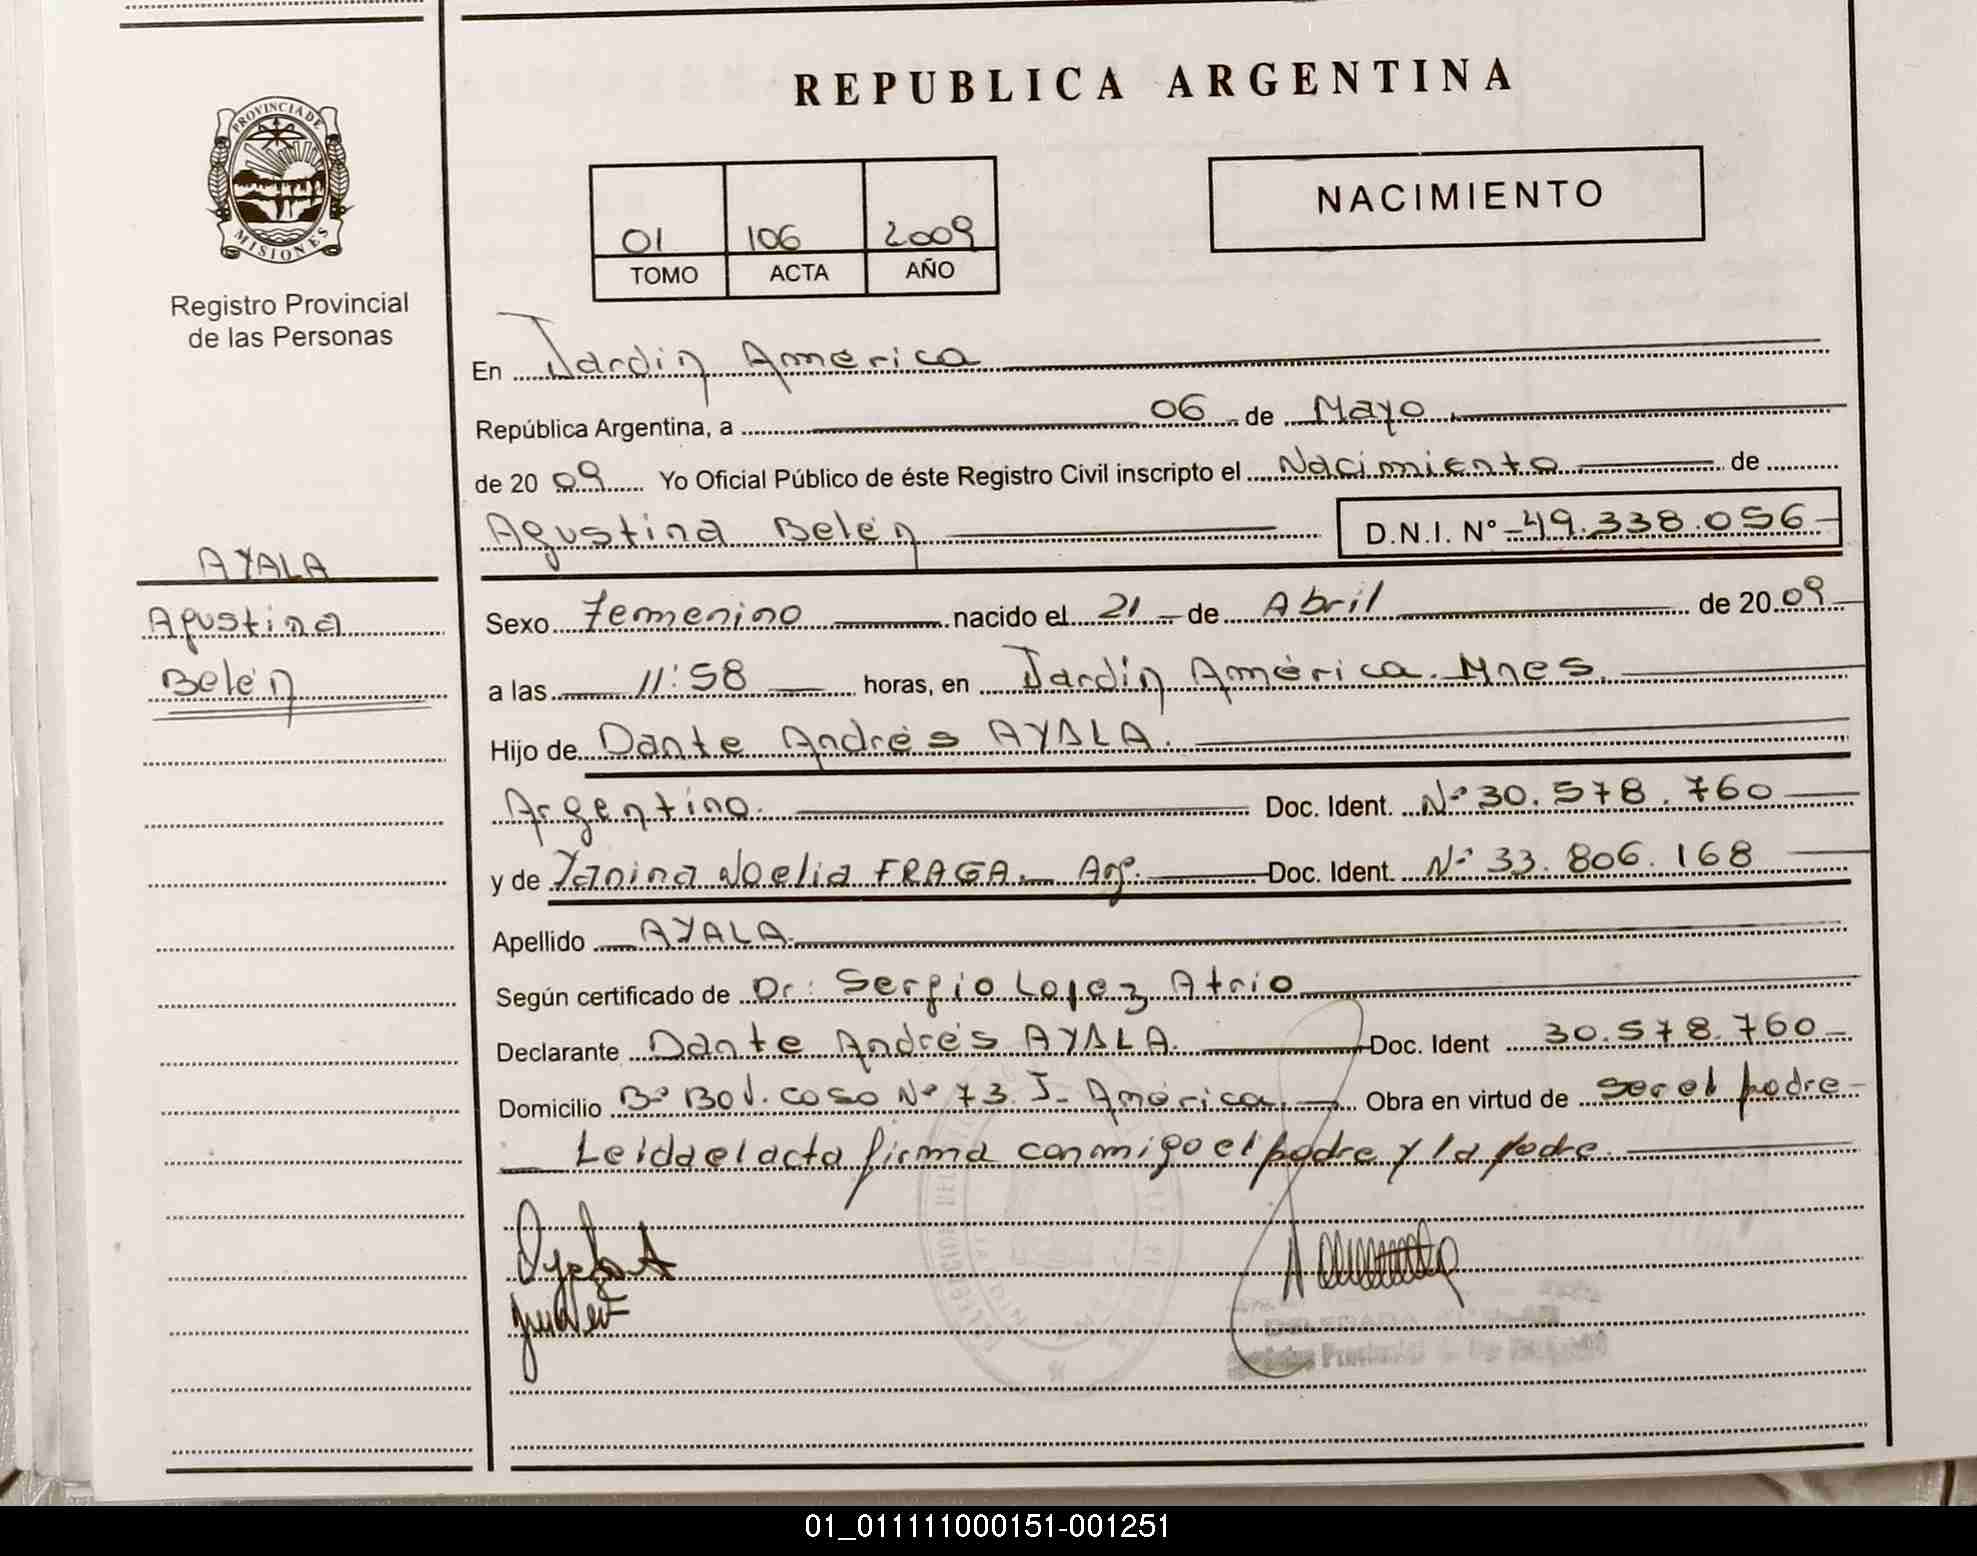 REPUBLICA ARGENTINA
PROVINCIA DE
MISIONES
Registro Provincial
de las Personas
NACIMIENTO
01 106 2009
TOMO ACTA AÑO
En Jardín América
República Argentina, a 06 de Mayo
de 20 09 Yo Oficial Público de éste Registro Civil inscripto el Nacimiento de
Agustina Belén D.N.I. Nº 49.338.056
AYALA
Agustina
Belén
Sexo Femenino nacido el 21 de Abril de 20 09
a las 11:58 horas, en Jardín América. Mnes.
Hijo de Dante Andrés AYALA.
Argentino. Doc. Ident. Nº 30.578.760
y de Yanina Noelia FRAGA. Arg. Doc. Ident. Nº 33.806.168
Apellido AYALA
Según certificado de Dr: Sergio Lopez Atrio
Declarante Dante Andrés AYALA. Doc. Ident 30.578.760
Domicilio Bº Bol. caso Nº 73. J. América. Obra en virtud de ser el padre
Leida el acta firma conmigo el padre y la padre.
01_011111000151-001251